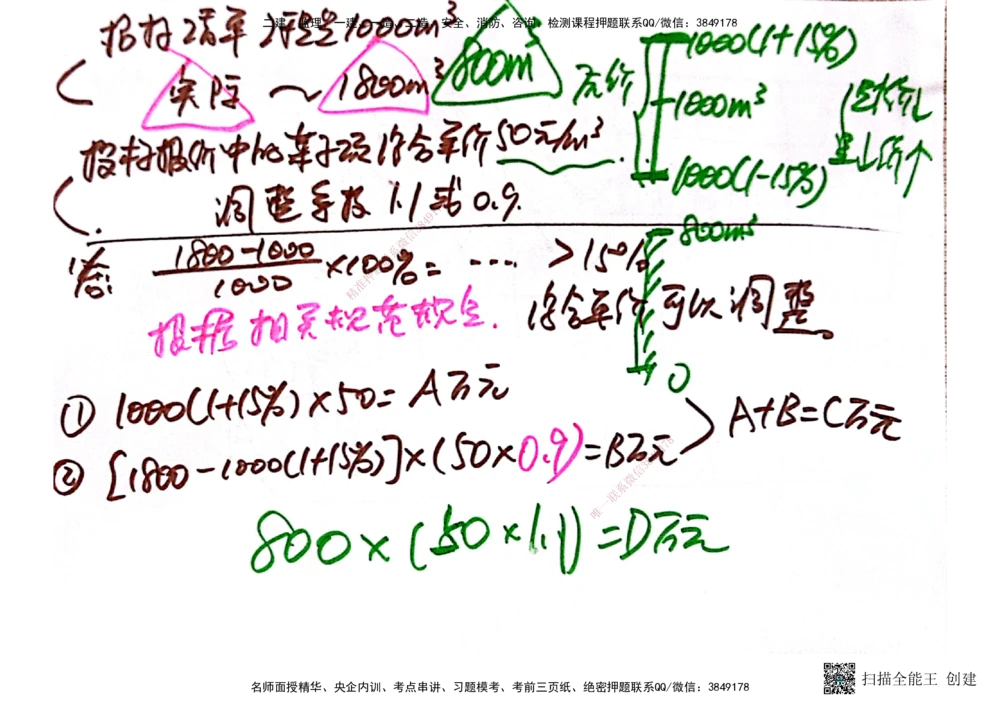 二建、监理、一建、一造、二造、安全、消防、咨询、检测课程押题联系QQ/微信：3849178
招标清单 工程量1000m³
实际 ～ 1800m³ 800m³
投标报价中的某子项综合单价50元/m³.
调整系数 1.1或0.9.
原价
1000(1+15%)
1000m³
1000(1-15%)
量大价↓
量小价↑
800m³
0
答: (1800-1000)/1000 ×100%= … >15%
根据相关规范规定. 综合单价可以调整。
① 1000(1+15%)×50=A万元
② [1800-1000(1+15%)]×(50×0.9)=B万元
A+B=C万元
800×(50×1.1)=D万元
名师面授精华、央企内训、考点串讲、习题模考、考前三页纸、绝密押题联系QQ/微信：3849178
扫描全能王 创建